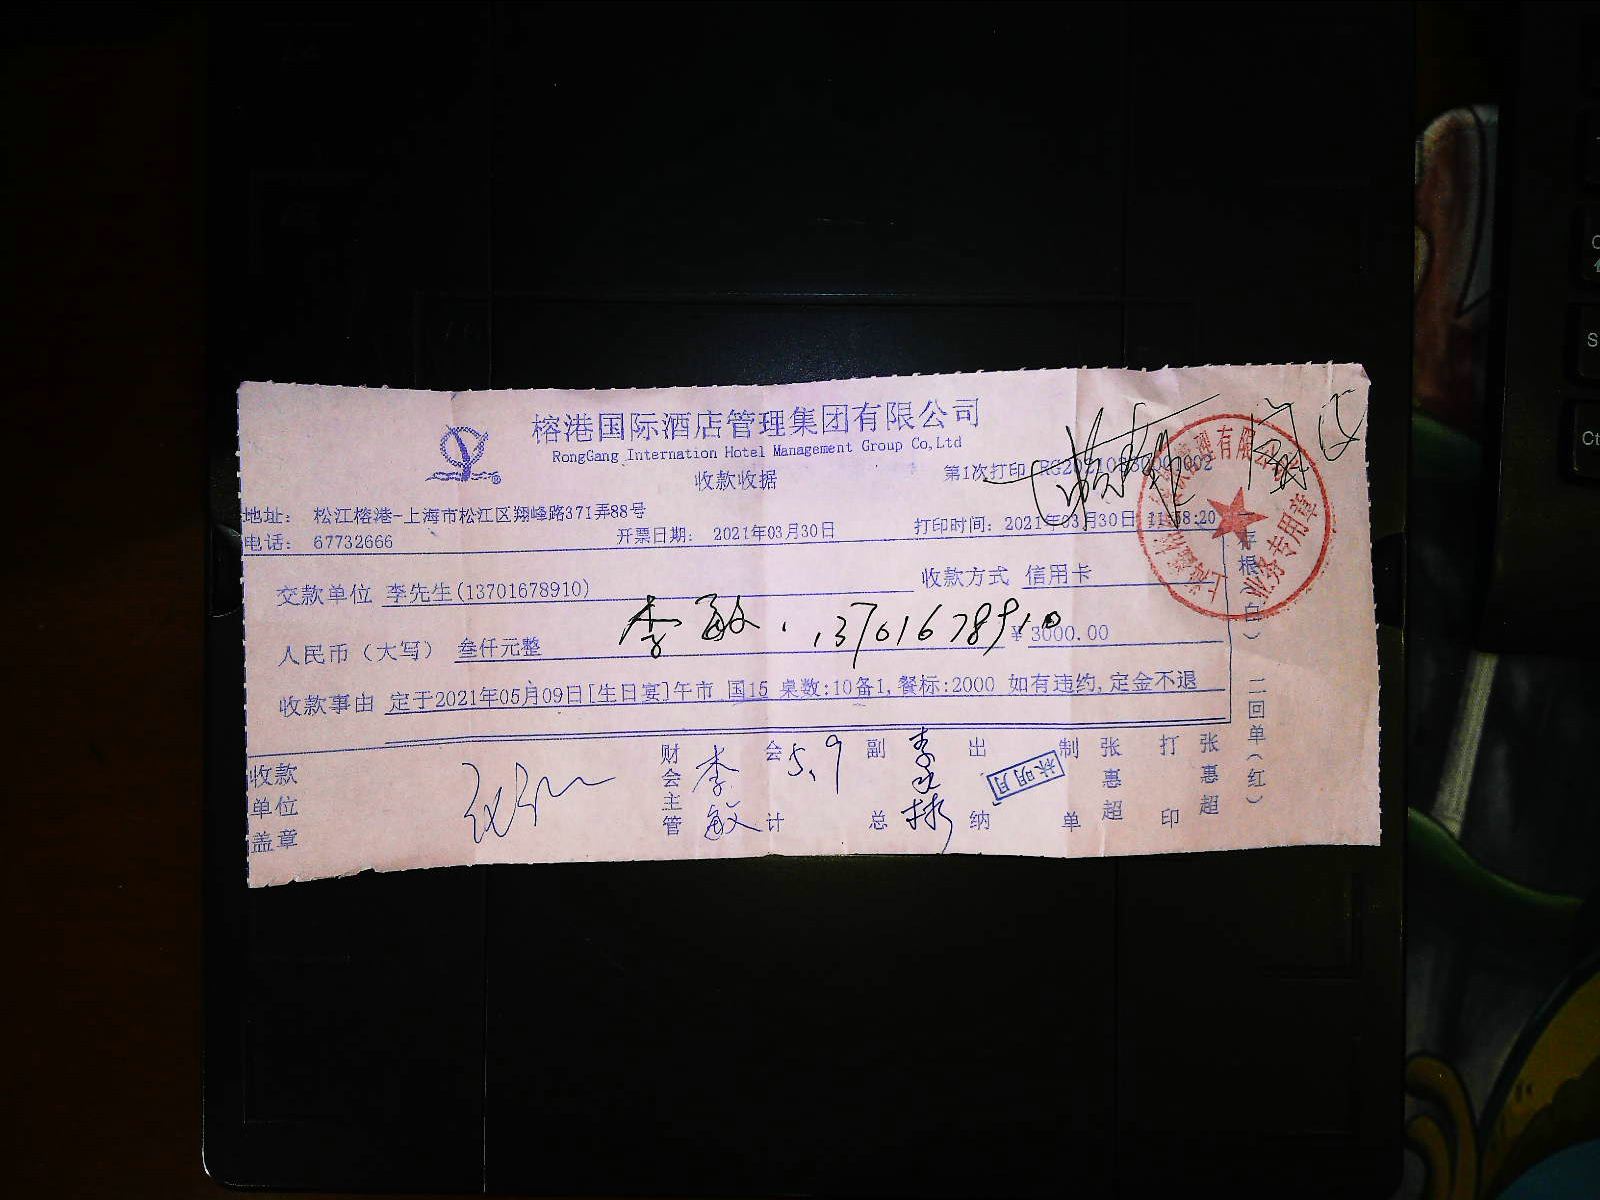 榕港国际酒店管理集团有限公司
RongGang International Hotel Management Group Co,Ltd
收款收据
第1次打印
地址: 松江榕港-上海市松江区翔峰路371弄88号
电话: 67732666
开票日期: 2021年03月30日
打印时间: 2021年03月30日 11:58:20
交款单位 李先生(13701678910)
收款方式 信用卡
人民币(大写) 叁仟元整
李敏. 13701678910
¥ 3000.00
收款事由 定于2021年05月09日[生日宴]午市 国15 桌数:10备1,餐标:2000 如有违约,定金不退
收款单位盖章
财会主管 李敏
会计 5.9
副总
出纳 林明月
制单 张惠超
打印 张惠超
存根(白) 二回单(红)
业务专用章